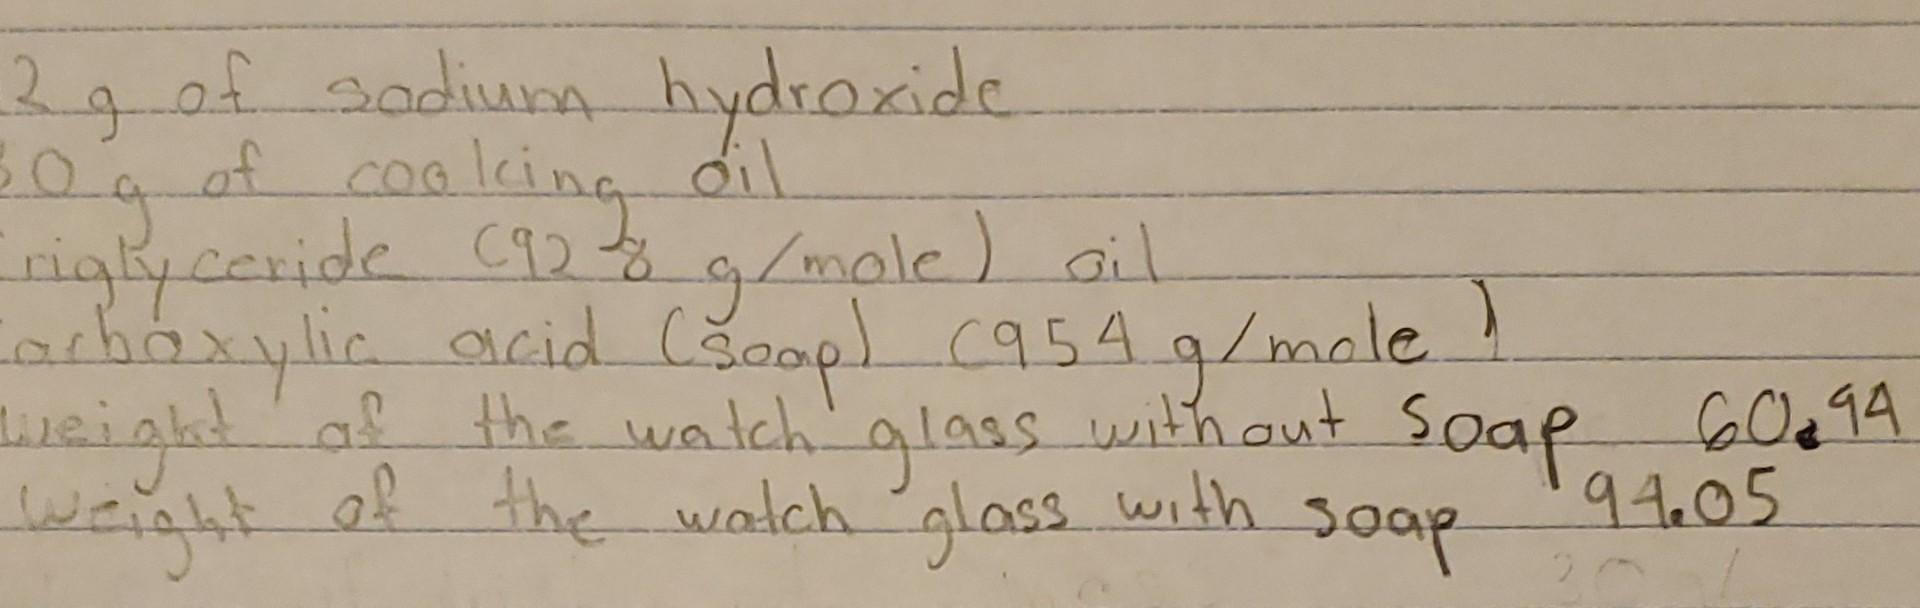 2 g of sodium hydroxide
30 g of cooking oil
riglyceride (928 g/mole) oil
arboxylic acid (soap) (954 g/mole)
weight of the watch glass without soap 60.94
weight of the watch glass with soap 94.05